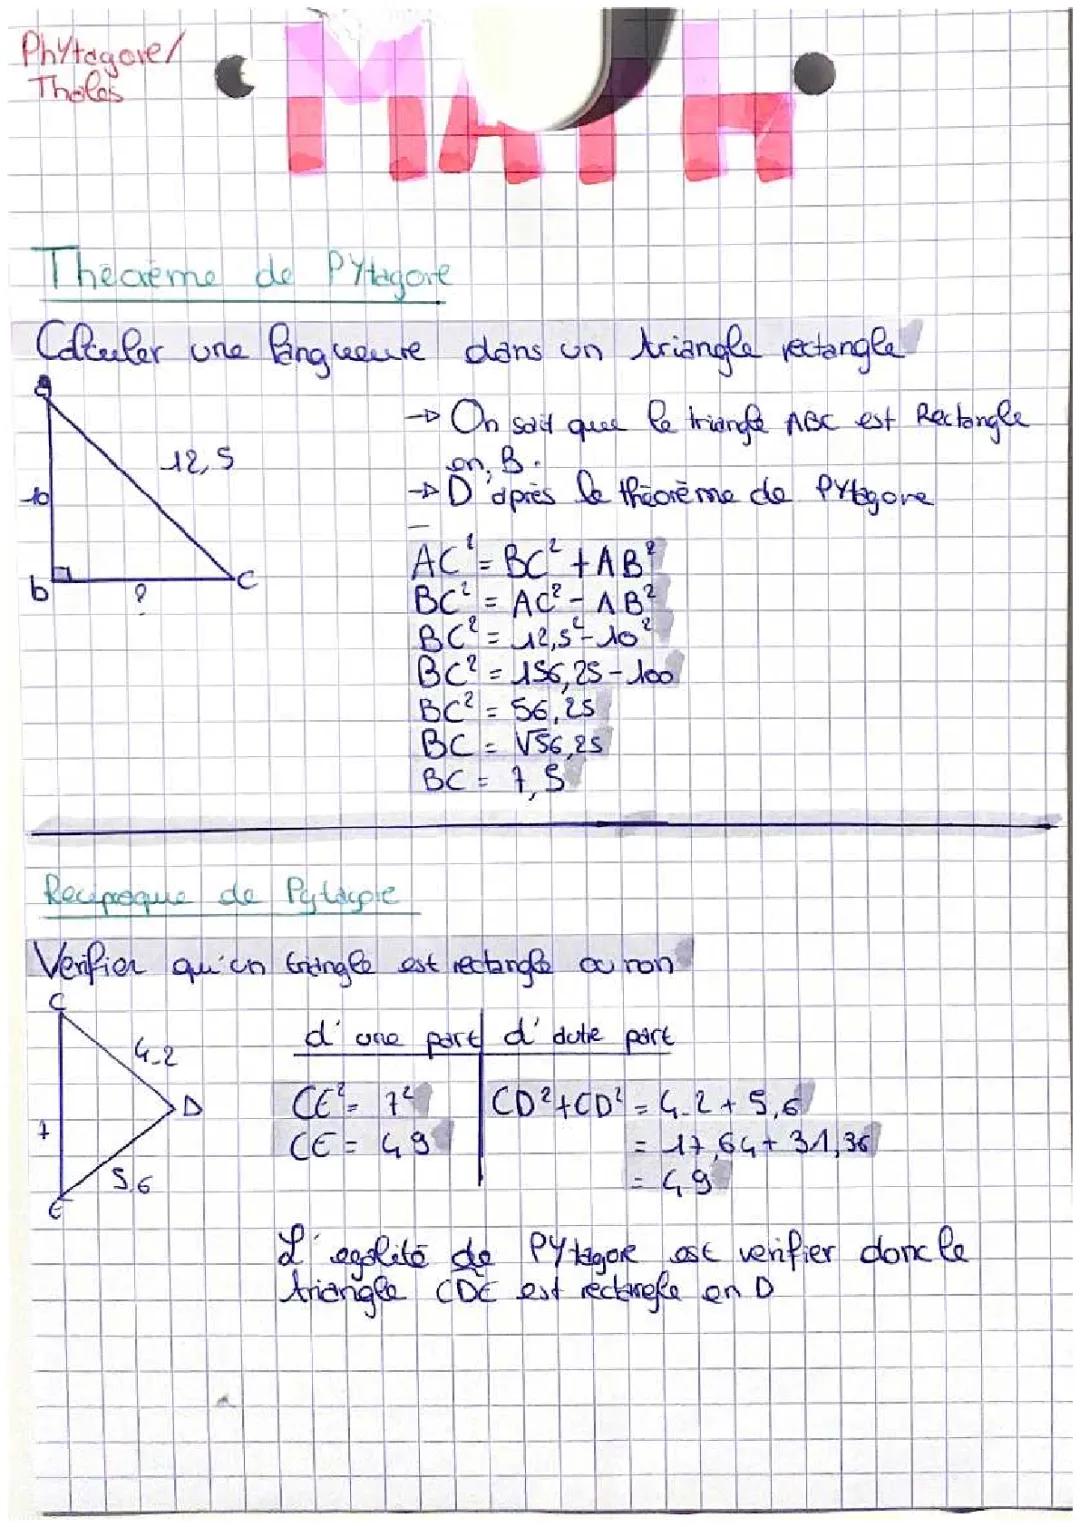 Phytagore/
Thales
MATH
Théorème de PYtagore
Calculer une longueure dans un triangle rectangle
A
12,5
10
b
?
C
→ On sait que le triangle ABC est Rectangle
en B.
→ D'après le théorème de PYtagore
AC² = BC² + AB²
BC² = AC² - AB²
BC² = 12,5² - 10²
BC² = 156,25 - 100
BC² = 56,25
BC = √56,25
BC = 7,5
Reciproque de Pytagore
Verifier qu'un triangle est rectangle ou non
C
4.2
D
7
5.6
E
d'une part d'autre part
CE² = 7²
CE = 49
CD²+CD² = 4.2 + 5,6
= 17,64 + 31,36
= 49
L'egalité de PYtagore est verifier donc le
triangle CDE est rectangle en D